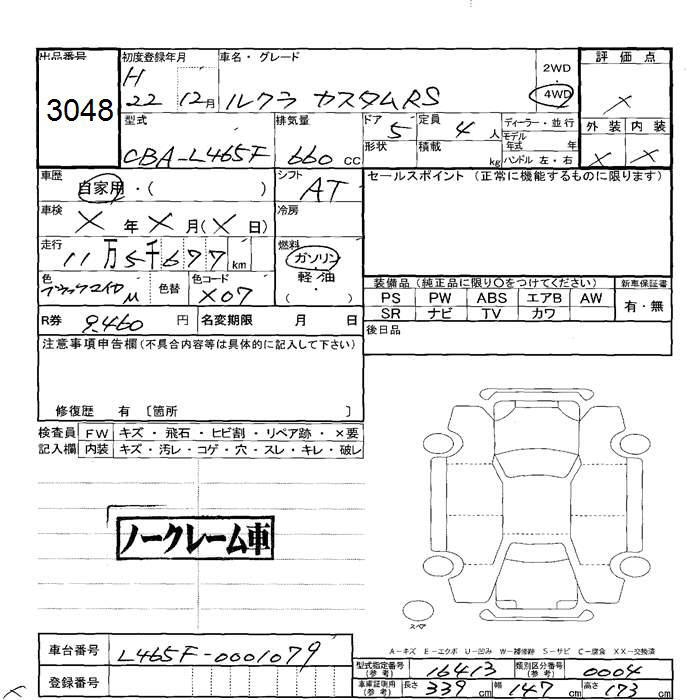 出品番号 初度登録年月 車名・グレード 2WD 評価点
3048 H 22 12月 ルクラ カスタムRS ・ 4WD ×
型式 排気量 ドア 5 定員 4 人 ディーラー・並行 外装 内装
CBA-L465F 660 cc 形状 積載 kg モデル年式 年 × ×
ハンドル 左・右
車歴 自家用・( ) シフト AT セールスポイント (正常に機能するものに限ります)
車検 × 年 × 月(× 日) 冷房
走行 11万5千677 km 燃料 ガソリン
軽油
・( )
色 ブラックマイカM 色替 色コード X07
装備品 (純正品に限り○をつけてください) 新車保証書
PS PW ABS エアB AW 有・無
SR ナビ TV カワ
R券 9,460 円 名変期限 月 日 後日品
注意事項申告欄(不具合内容等は具体的に記入して下さい)
修復歴 有 〔箇所 〕
検査員 FW キズ・飛石・ヒビ割・リペア跡・×要
記入欄 内装 キズ・汚レ・コゲ・穴・スレ・キレ・破レ
ノークレーム車
スペア
A-キズ E-エクボ U-凹み W-補修跡 S-サビ C-腐食 XX-交換済
車台番号 L465F-0001079
登録番号
型式指定番号(参考) 16413 類別区分番号(参考) 0004
車庫証明用(参考) 長さ 339 cm 幅 147 cm 高さ 173 cm
×